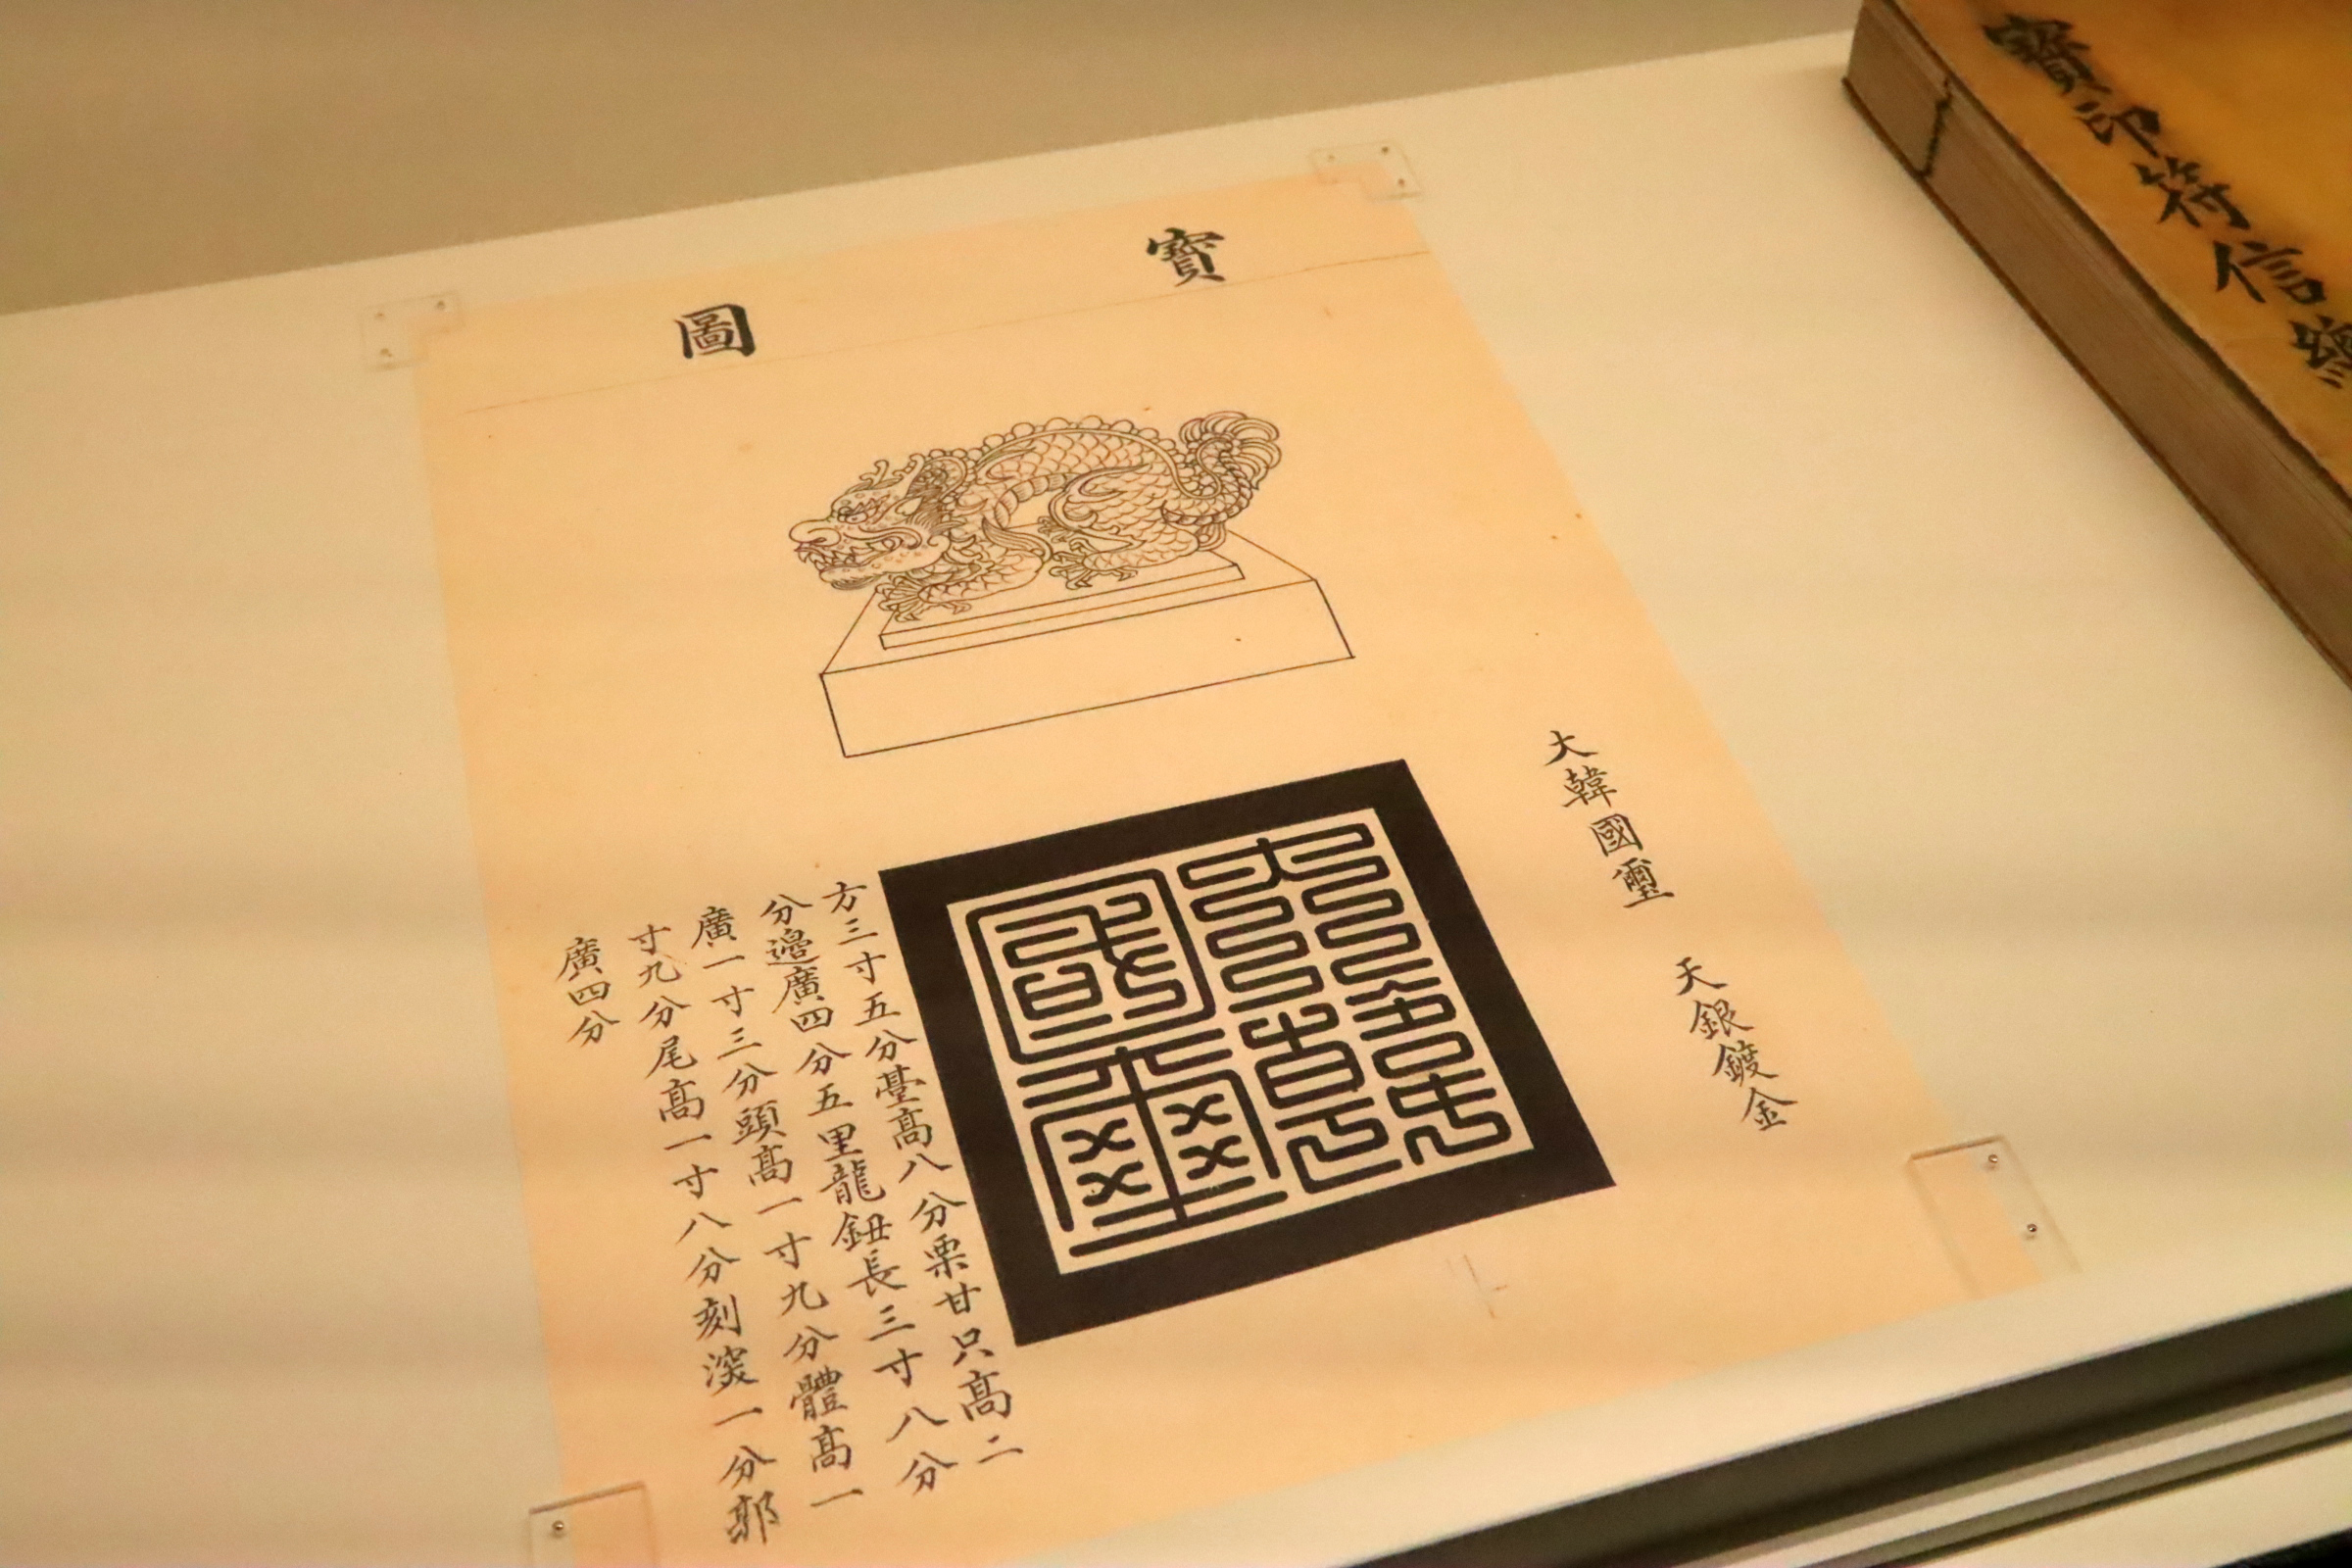 寶印符信
寶圖
大韓國璽 天銀鍍金
大韓
國璽
方三寸五分臺髙八分栗甘只髙二
分邊廣四分五里龍鈕長三寸八分
廣一寸三分頭髙一寸九分體髙一
寸九分尾髙一寸八分刻深一分郭
廣四分